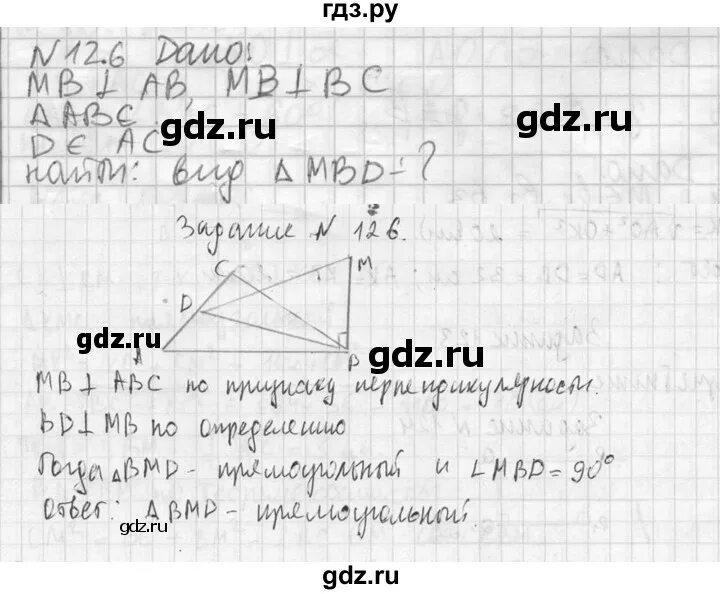 гдз.ру
N 12.6 Дано:
MB⊥AB, MB⊥BC
△ABC
D ∈ AC
gdz.ru gdz.ru
найти: вид △MBD-?
Задание N 12.6.
C
M
D
gdz.ru
gdz.ru
A
B
MB⊥ABC по признаку перпендикулярности.
BD⊥MB по определению
Тогда △BMD - прямоугольный и ∠MBD=90°
ответ: △BMD - прямоугольный.
gdz.ru
gdz.ru
gdz.ru